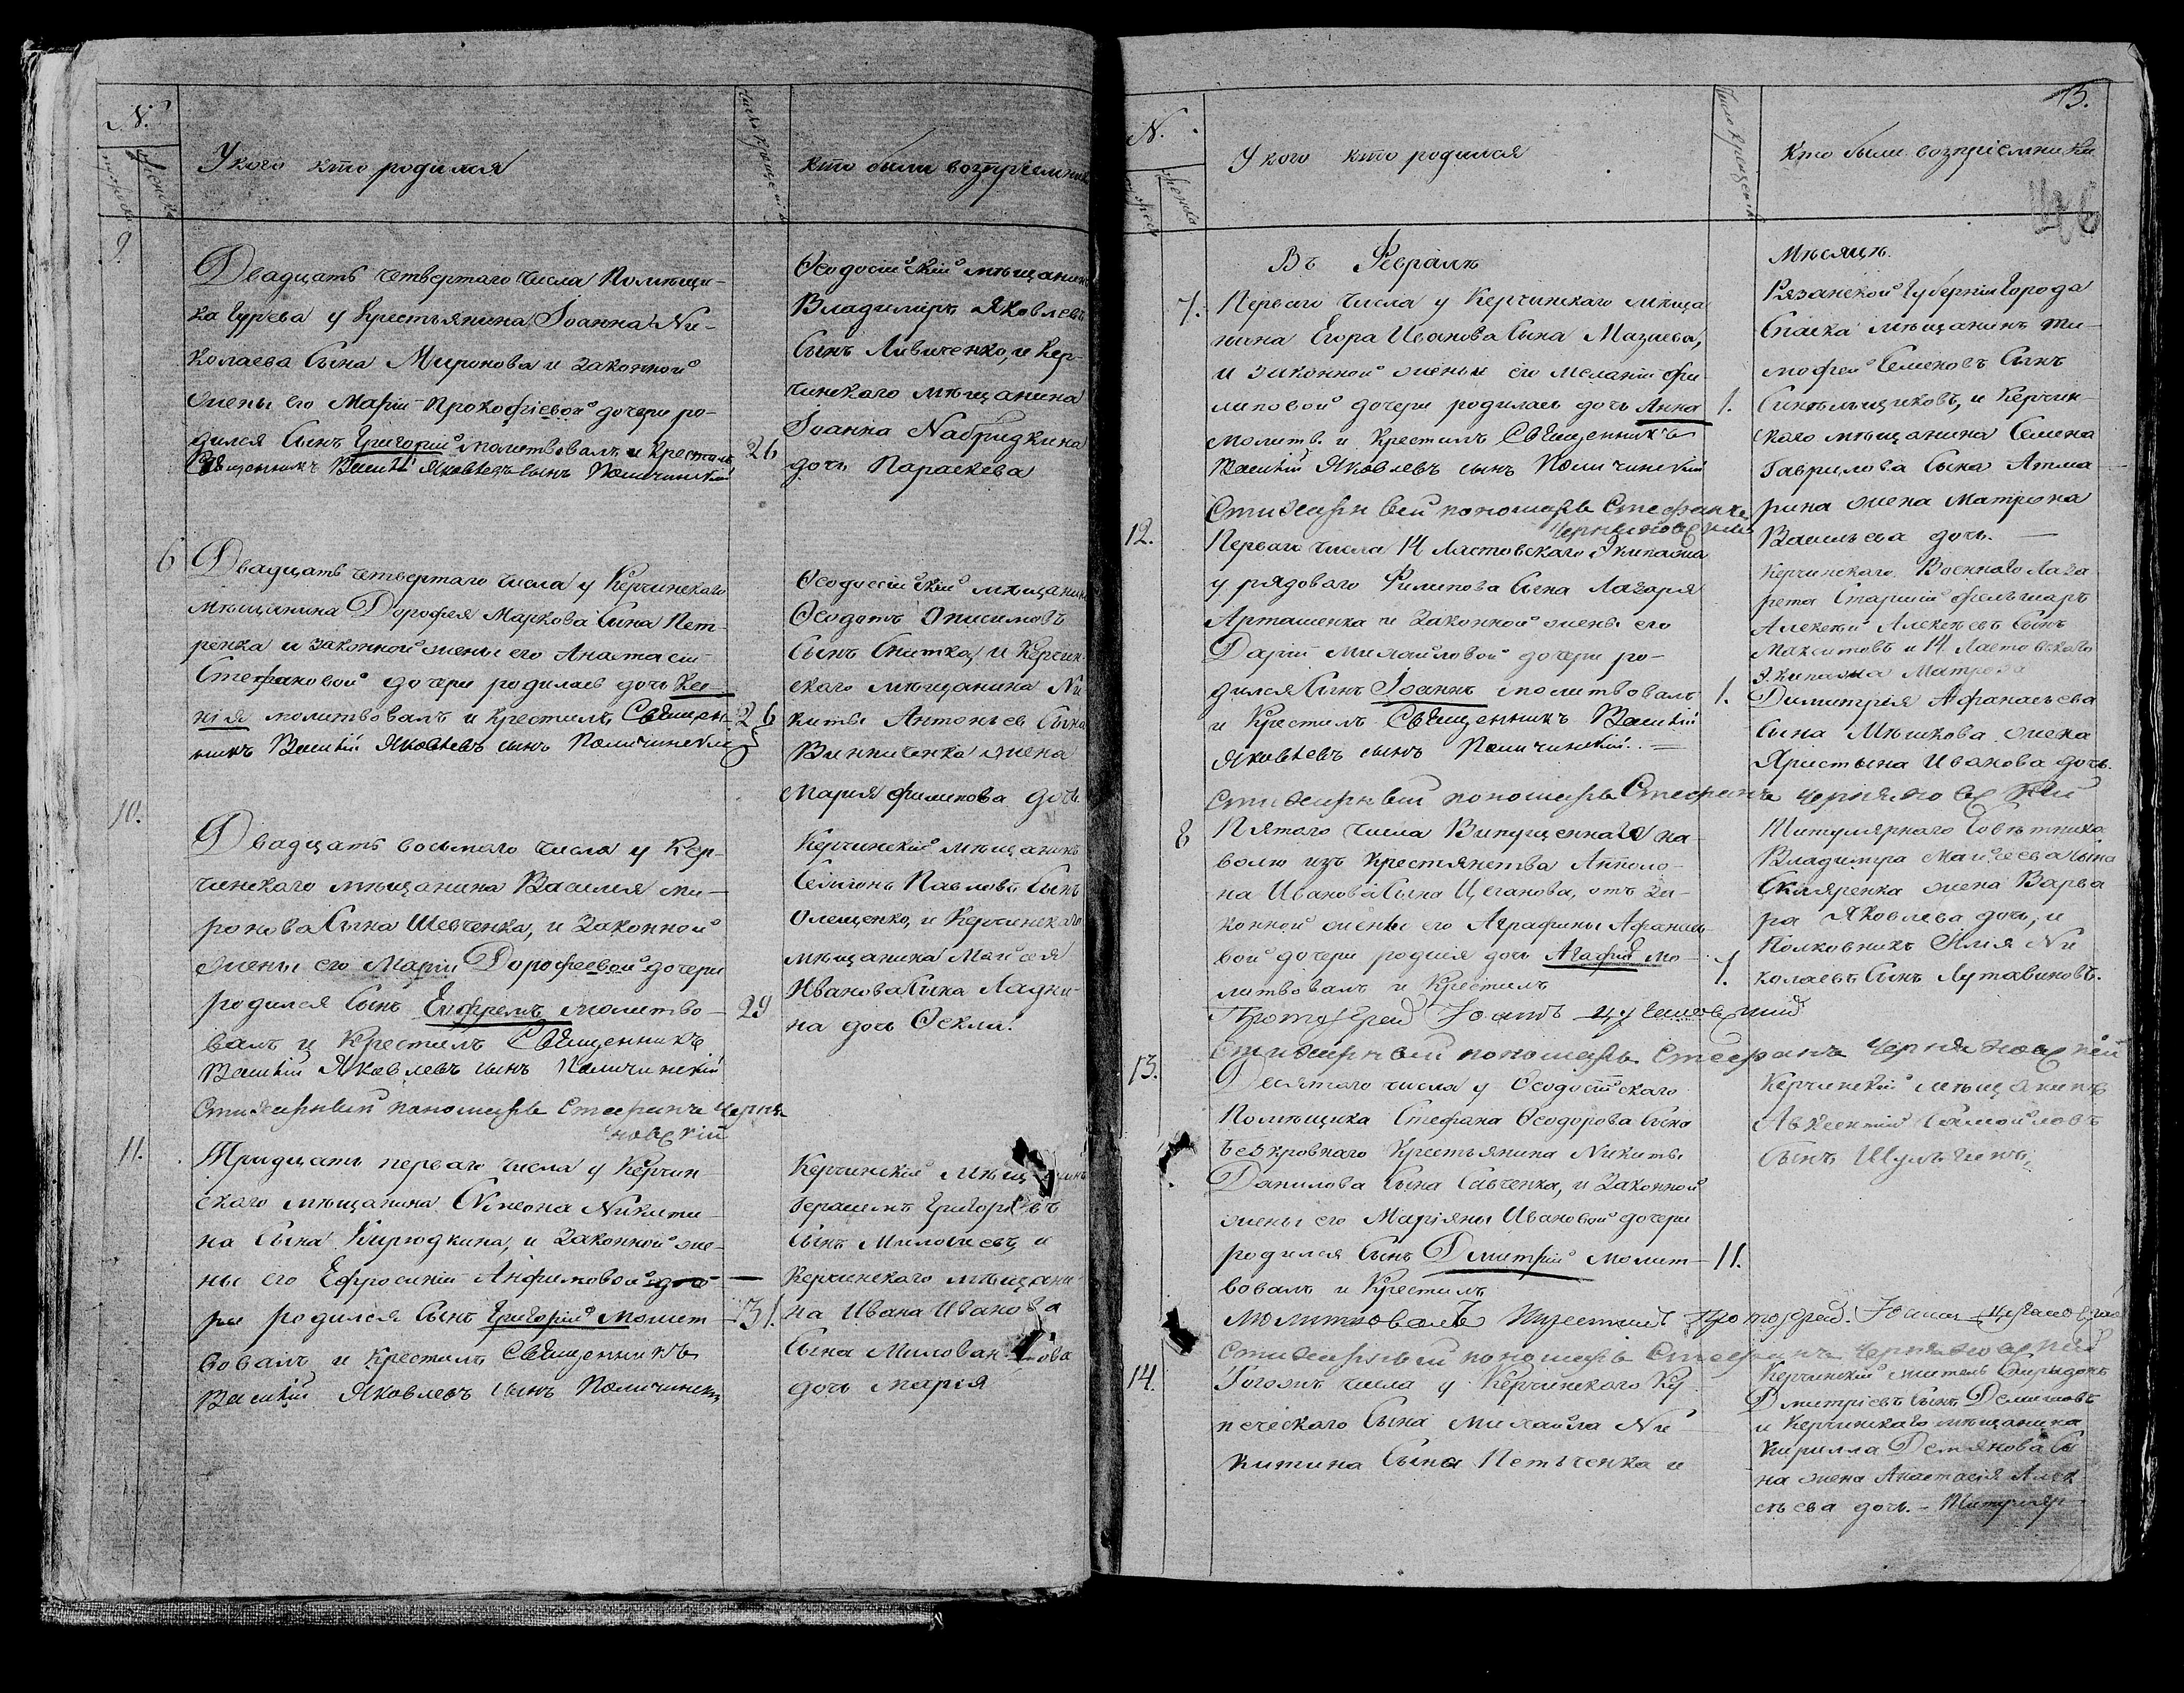 №.
мужска
женска
У кого кто родился
Число крещенія
кто были возпріемники
9.
Двадцать четвертаго числа Помѣщи-
ка Гурева у Крестьянина Іоанна Ни-
колаева Сына Миронова и законной
жены его Маріи Прокофіевой дочери ро-
дился Сынъ Григорій молитвовалъ и Крестилъ
Священникъ Василій Яковлевъ сынъ
26
Ѳеодосійскій мѣщанинъ
Владиміръ Яковлевъ
Сынъ Ливиченко, и Кер-
чинскаго мѣщанина
Іоанна Набридкина
дочь Параскева
6
Двадцать четвертаго числа у Керчинскаго
мѣщанина Дорофея Маркова Сына Пет-
ренка и законной жены его Анастасіи
Стефановой дочери родилась дочь Ксе-
нія молитвовалъ и крестилъ Священ-
никъ Василій Яковлевъ сынъ
26
Ѳеодосійскій мѣщанинъ
Ѳеодотъ Онисимовъ
Сынъ Снитка, и Керчин-
скаго мѣщанина Ни
киты Антоньев Сына
Винниченка жена
Марія Филипова дочь
10.
Двадцать восьмаго числа у Кер-
чинскаго мѣщанина Василія Ми-
ронова Сына Шевченка, и Законной
жены его Маріи Дорофеевой дочери
родился Сынъ Ефремъ молитво-
валъ и Крестилъ Священникъ
Василій Яковлевъ сынъ
Стихарный пономарь Стефанъ Черня
новскій
29
Керчинскій мѣщанинъ
Павловъ Сынъ
Олещенко, и Керчинскаго
мѣщанина Мойсея
Иванова Сына Ладки-
на дочь Ѳекла.
11.
Тридцать перваго числа у Керчин
скаго мѣщанина Симеона Никити-
на Сына Кирюдкина, и Законной же-
ны его Ефросиніи Анфимовой доче-
ри родился Сынъ Григорій Молит
вовалъ и Крестилъ Священникъ
Василій Яковлевъ сынъ
31.
Керчинскій мѣщанинъ
Герасимъ Григорьевъ
Сынъ и
Керчинскаго мѣщани-
на Ивана Иванова
Сына Милованова
дочь Марія
13.
46
№.
женска
У кого кто родился
Число крещенія
Кто были возпріемники
Въ Февралѣ
Мѣсяцѣ.
7.
Перваго Числа у Керчинскаго мѣща
нина Егора Иванова Сына Мазнева,
и законной жены его Меланіи Фи-
липовой дочери родилась дочь Анна
молитв. и Крестилъ Священникъ
Василій Яковлевъ сынъ
Стихарный пономарь Стефанъ
Черняновскій
1.
Рязанской Губерніи Города
Спаска мѣщанинъ Ти-
мофей Семеновъ Сынъ
и Керчин-
скаго мѣщанина Семена
Гаврилова Сына Атма
рина жена Матрона
Васильева дочь.
12.
Перваго числа 14 Ластовскаго Экипажа
у рядоваго Филипова Сына Лазаря
Арташенка и Законной жены его
Даріи Михайловой дочери ро-
дился Сынъ Іоаннъ молитвовалъ
и Крестилъ Священникъ Василій
Яковлевъ сынъ
Стихарный пономарь Стефанъ Черняновскій
1.
Керчинскаго Военнаго Лаза
рета Старшій фельшаръ
Алексѣй Алексѣевъ Сынъ
Макситовъ и 14 Ластовскаго
Экипажа Матроза
Димитрія Афанасьева
Сына Мѣшкова жена
Христына Иванова дочь.
8
Пятаго числа Випущеннаго на
волю изъ Крестянства Апполо-
на Иванова Сына Циганова, отъ за-
конной жены его Аграфины Афанась
вой дочери родися дочь Агафія мо-
литвовалъ и Крестилъ
Протоіерей Іоаннъ
Стихарный пономарь Стефанъ Черняновскій
7.
Титулярнаго Совѣтника
Владимира Мойсеева Сына
Скляренка жена Варва
ра Яковлева дочь, и
Полковникъ Илія Ни
колаевъ Сынъ Лутавиновъ.
13.
Десятаго числа у Ѳеодосійскаго
Помѣщика Стефана Ѳеодорова Сына
Безкровнаго Крестьянина Никиты
Данилова Сына Савченка, и Законной
жены его Маріяны Ивановой дочери
родился Сынъ Дмитрій молит-
вовалъ и Крестилъ
Молитвовалъ Крестилъ Протоіерей. Іоаннъ
Стихарный пономарь Стефанъ Черняновскій
11.
Керчинскій мѣщанинъ
Авксентій Самойловъ
Сынъ
14.
Тогожъ числа у Керчинскаго Ку
печескаго Сына Михайла Ни
китина Сына Петиченка и
Керчинскій житель Спиридонъ
Дмитріевъ Сынъ Демишовъ
и Керчинскаго мѣщанина
Кирилла Демянова Сы
на жена Анастасія Алек
сѣева дочь. - Титуляр-